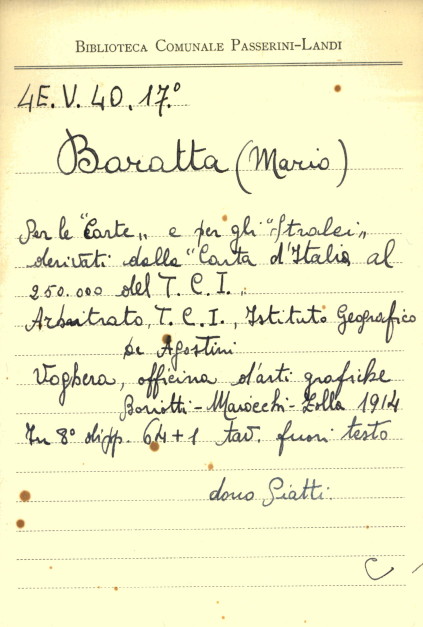 BIBLIOTECA COMUNALE PASSERINI-LANDI
4E.V.40.17.º
Baratta (Mario)
Per le "Carte„ e per gli "Stralci„
derivati dalla "Carta d'Italia al
250.000 del T.C.I.„
Arbitrato, T.C.I., Istituto Geografico
De Agostini
Voghera, officina d'arti grafiche
Boriotti-Majocchi-Zolla 1914
In 8º di pp. 64+1 tav. fuori testo
dono Piatti.
C